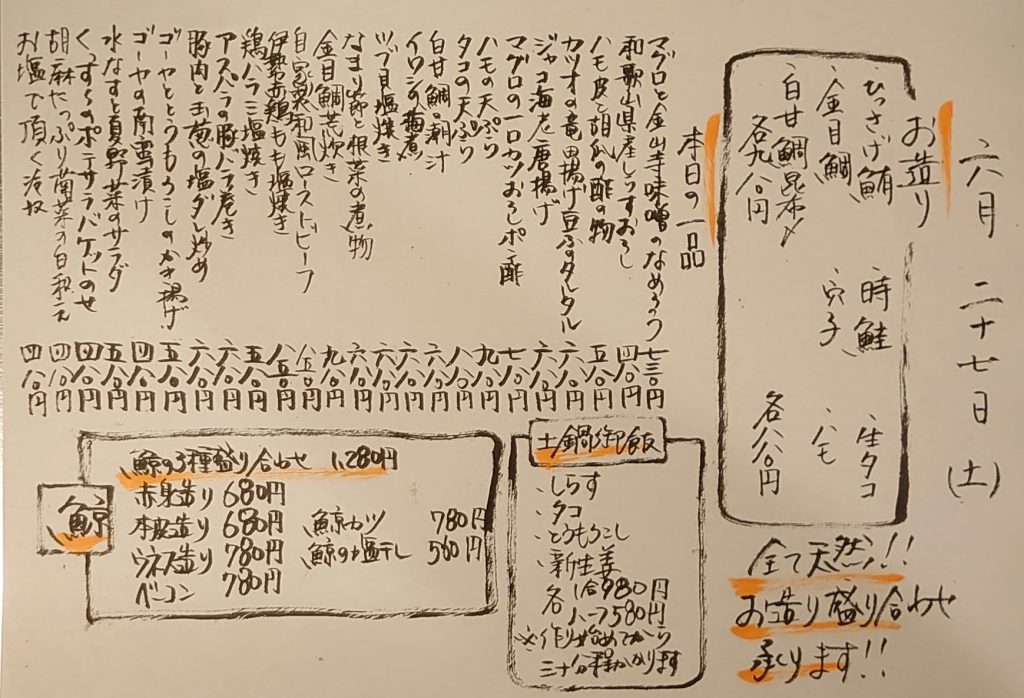 六月 二十七日 (土)
お造り
ひっさげ鮪 時鮭 生タコ
金目鯛 穴子 ハモ
白甘鯛昆布〆
各九八〇円 各八八〇円
全て天然!!
お造り盛り合わせ
承ります!!
本日の一品
マグロと金山寺味噌のなめろう 七三〇円
和歌山県産しらすおろし 四八〇円
ハモ皮と胡瓜の酢の物 五八〇円
カツオの竜田揚げ豆ふのタルタル 六八〇円
ジャコ海老唐揚げ 六八〇円
マグロの一口カツおろしポン酢 七八〇円
ハモの天ぷら 九八〇円
タコの天ぷら 八八〇円
白甘鯛の潮汁 六八〇円
イワシの梅煮 六八〇円
ツブ貝塩焼き 六八〇円
なまり節と根菜の煮物 六八〇円
金目鯛荒炊き 九八〇円
自家製和風ローストビーフ 八五〇円
伊勢赤鶏もも塩焼き 八五〇円
鶏ハラミ塩焼き 五八〇円
アスパラの豚バラ巻き 六八〇円
豚肉と玉葱の塩ダレ炒め 六八〇円
ゴーヤととうもろこしのかき揚げ 五八〇円
ゴーヤの南蛮漬け 四八〇円
水なすと夏野菜のサラダ 五八〇円
くんずらのポテサラバケットのせ 四八〇円
胡麻たっぷり菊菜の白和え 四八〇円
お塩で頂く冷奴 四八〇円
土鍋御飯
・しらす
・タコ
・とうもろこし
・新生姜
各 1合980円
ハーフ580円
※作り始めてから
三十分程かかります
鯨
鯨の3種盛り合わせ 1,280円
赤身造り 680円
本皮造り 680円 鯨カツ 780円
ウネス造り 780円 鯨の塩干し 560円
ベーコン 780円